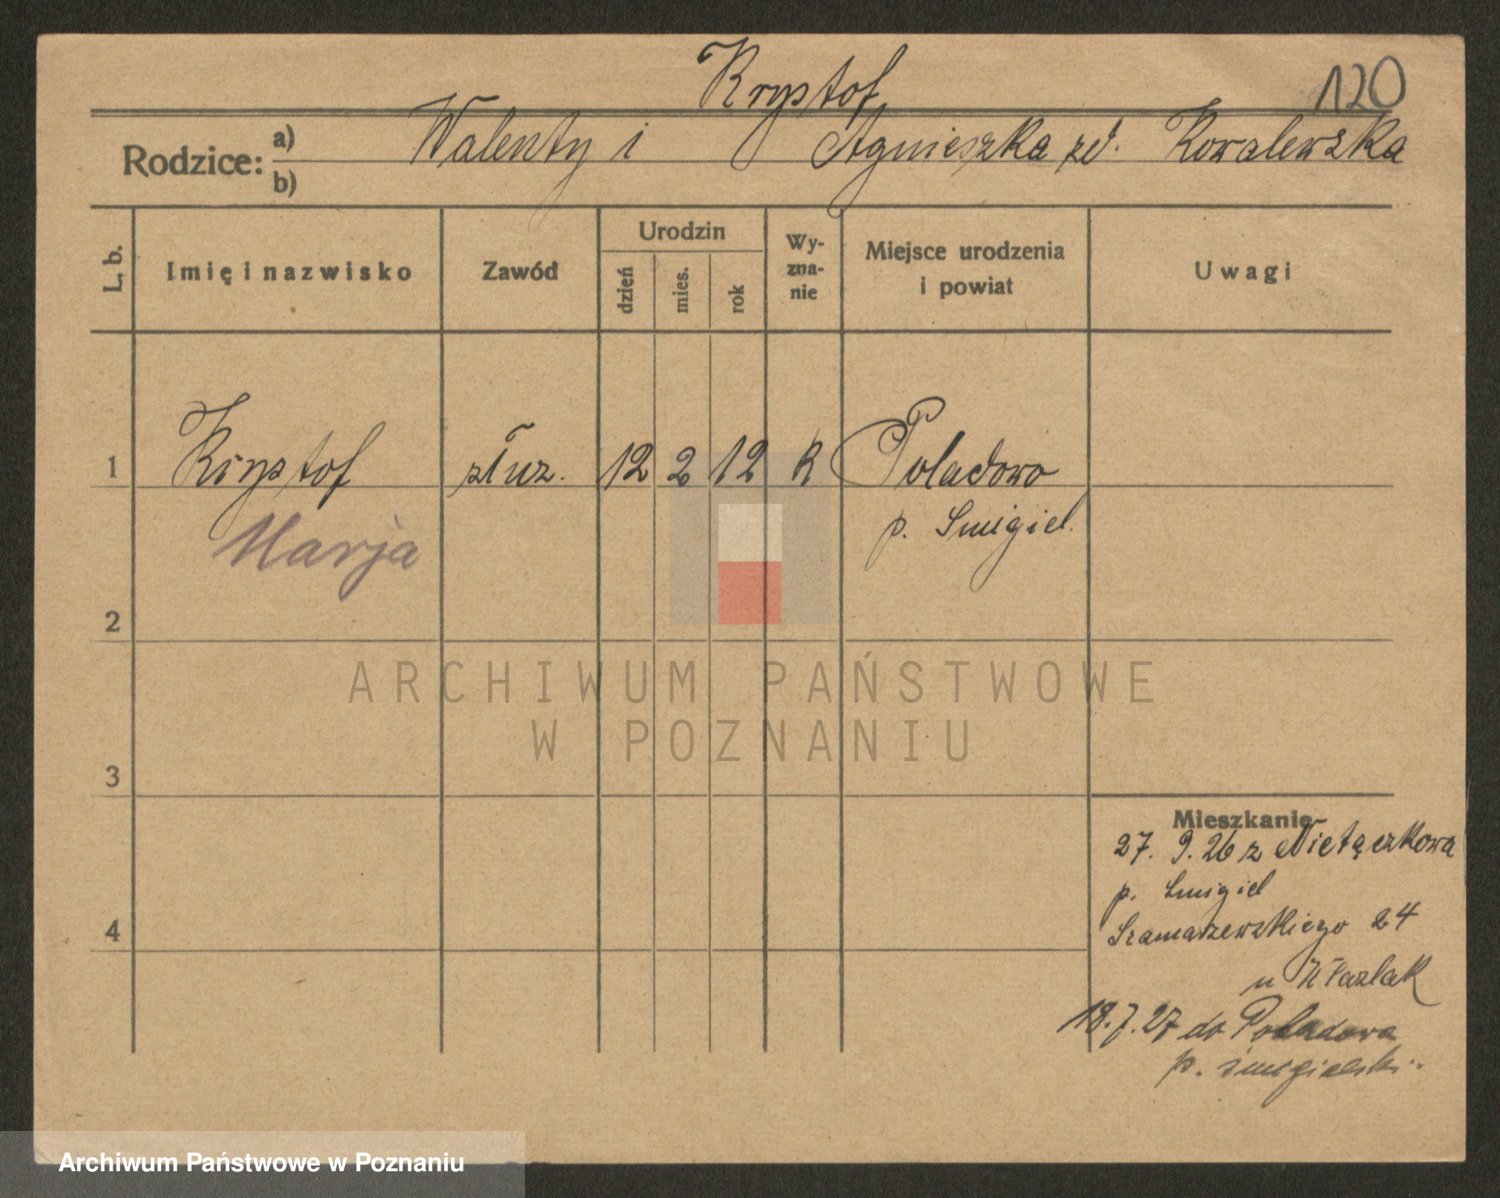 Krystof
120
Rodzice: a) Walenty i Agnieszka zd. Kowalewska
b)
L. b.
Imię i nazwisko
Zawód
Urodzin
dzień
mies.
rok
Wy-
zna-
nie
Miejsce urodzenia
i powiat
Uwagi
1 Krystof służ. 12 2 12 R Poladowo
Marja p. Smigiel.
2
3
4
Mieszkanie
27. 9. 26 z Nietączkowa
p. Smigiel
Szamarzewskiego 24
u
18. 7. 27 do Poladowa
p.
ARCHIWUM PAŃSTWOWE
W POZNANIU
Archiwum Państwowe w Poznaniu